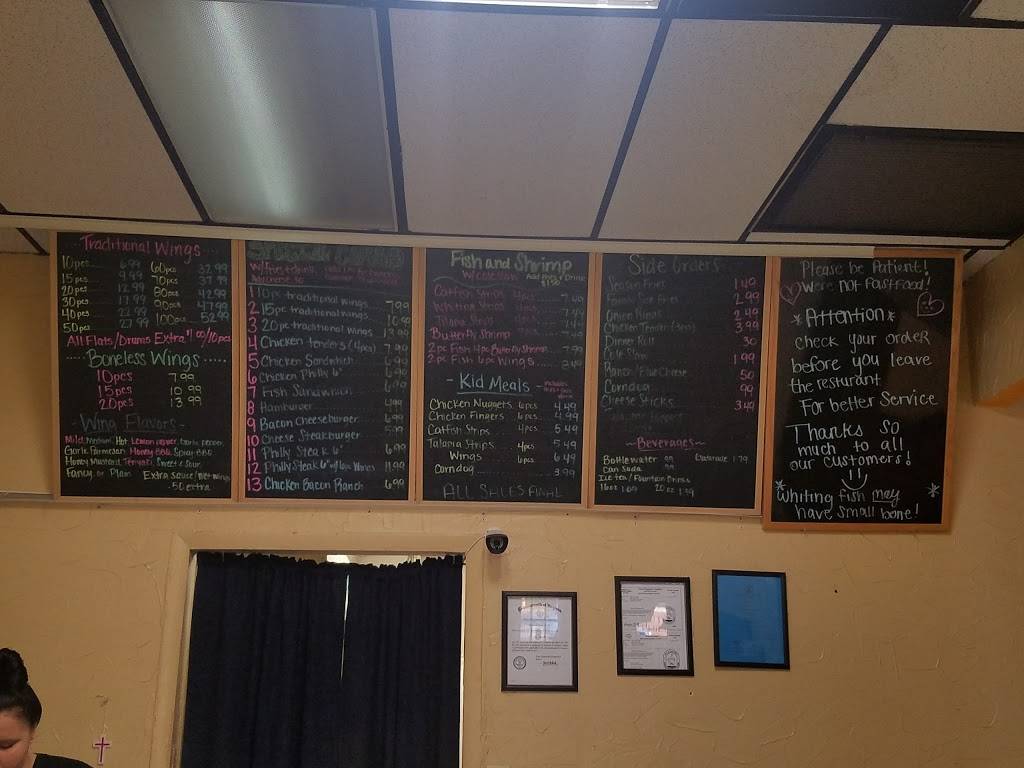 Traditional Wings
10pcs 6.99 60pcs 32.99
15pcs 9.99 70pcs 37.99
20pcs 12.99 80pcs 42.99
30pcs 17.99 90pcs 47.99
40pcs 22.99 100pcs 52.99
50pcs 27.99
All Flats/Drums Extra $1.00/10pcs
Boneless Wings
10pcs 7.99
15pcs 10.99
20pcs 13.99
- Wing Flavors -
Mild, Medium, Hot, Lemon pepper, Garlic pepper
Garlic Parmesan, Honey BBQ, Spicy BBQ
Honey Mustard, Teriyaki, Sweet & Sour
Fancy or Plain Extra Sauce/Wet Wings
.50 extra
1 10pc traditional wings 7.99
2 15pc traditional wings 10.99
3 20pc traditional wings 13.99
4 Chicken tenders (4pcs) 7.99
5 Chicken Sandwich 6.99
6 Chicken Philly 6" 6.99
7 Fish Sandwich 6.99
8 Hamburger 4.99
9 Bacon cheeseburger 6.99
10 Cheese Steakburger 5.99
11 Philly Steak 6" 6.99
12 Philly Steak 6" w/ 6pc Wings 11.99
13 Chicken Bacon Ranch 6.99
Fish and Shrimp
W/ Coleslaw
Add Fries & Drink $1.50
Catfish Strips 4pcs 7.49
Whiting Strips
Tilapia Strips
Butterfly Shrimp
2pc Fish 4pc Butterfly Shrimp 7.99
2pc Fish 6pc Wings 8.49
- Kid Meals -
Chicken Nuggets 6pcs 4.49
Chicken Fingers 6pcs 4.99
Catfish Strips 4pcs 5.49
Talapia Strips 4pcs 5.49
Wings 6pcs 6.49
Corndog 3.99
ALL SALES FINAL
Side Orders
Season Fries 1.49
Family Size Fries 2.99
Onion Rings 2.49
Chicken Tender (3pcs) 3.99
Dinner Roll 30
Cole Slaw 1.99
Ranch/Blue Cheese 50
Corndog 99
Cheese Sticks 3.49
~Beverages~
Bottle water 99 Gatorade 1.79
Can Soda 99
Ice tea/Fountain Drinks
16oz 1.09 20oz 1.39
Please be Patient!
We're not fastfood!
*Attention*
check your order
before you leave
the resturant
For better Service
Thanks so
much to all
our customers!
*Whiting fish may *
have small bone!